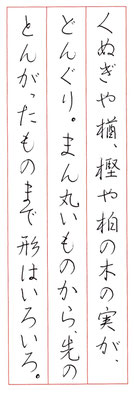 くぬぎや楢、樫や柏の木の実が、
どんぐり。まん丸いものから、先の
とんがったものまで形はいろいろ。